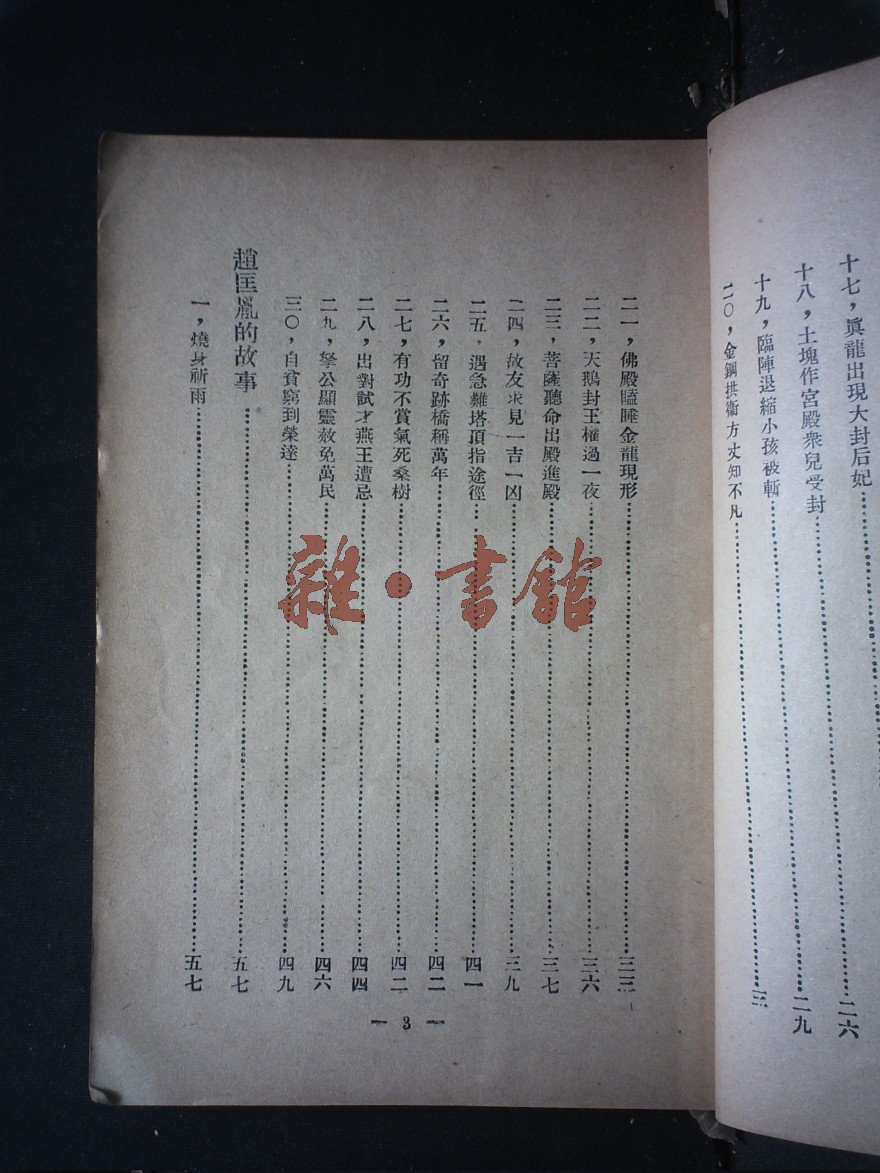 十七，眞龍出現大封后妃……二六
十八，土塊作宮殿衆兒受封……二九
十九，臨陣退縮小孩被斬……三一
二〇，金鋼拱衛方丈知不凡……
二一，佛殿瞌睡金龍現形……三三
二二，天鵝封王權過一夜……三六
二三，菩薩聽命出殿進殿……三七
二四，故友求見一吉一凶……三九
二五，遇急難塔頂指途徑……四一
二六，留奇跡橋稱萬年……四二
二七，有功不賞氣死桑樹……四二
二八，出對試才燕王遭忌……四四
二九，拏公顯靈赦免萬民……四六
三〇，自貧窮到榮達……四九
趙匡胤的故事……五七
一，燒身祈雨……五七
— 3 —
雜·書館